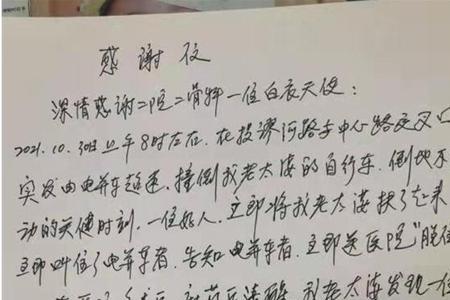 感谢信
深情感谢二院二骨科一位白衣天使：
2021.10.30日上午8时左右.在投漻河路与中心路交叉口
突发由电并车超速.撞倒我老太婆的自行车.倒地不
动的关健时刻.一位好人.立即将我老太婆扶了起来
立即叫住了电并车者.告知电并车者.立即送医院"脱位
我老太婆发现一位